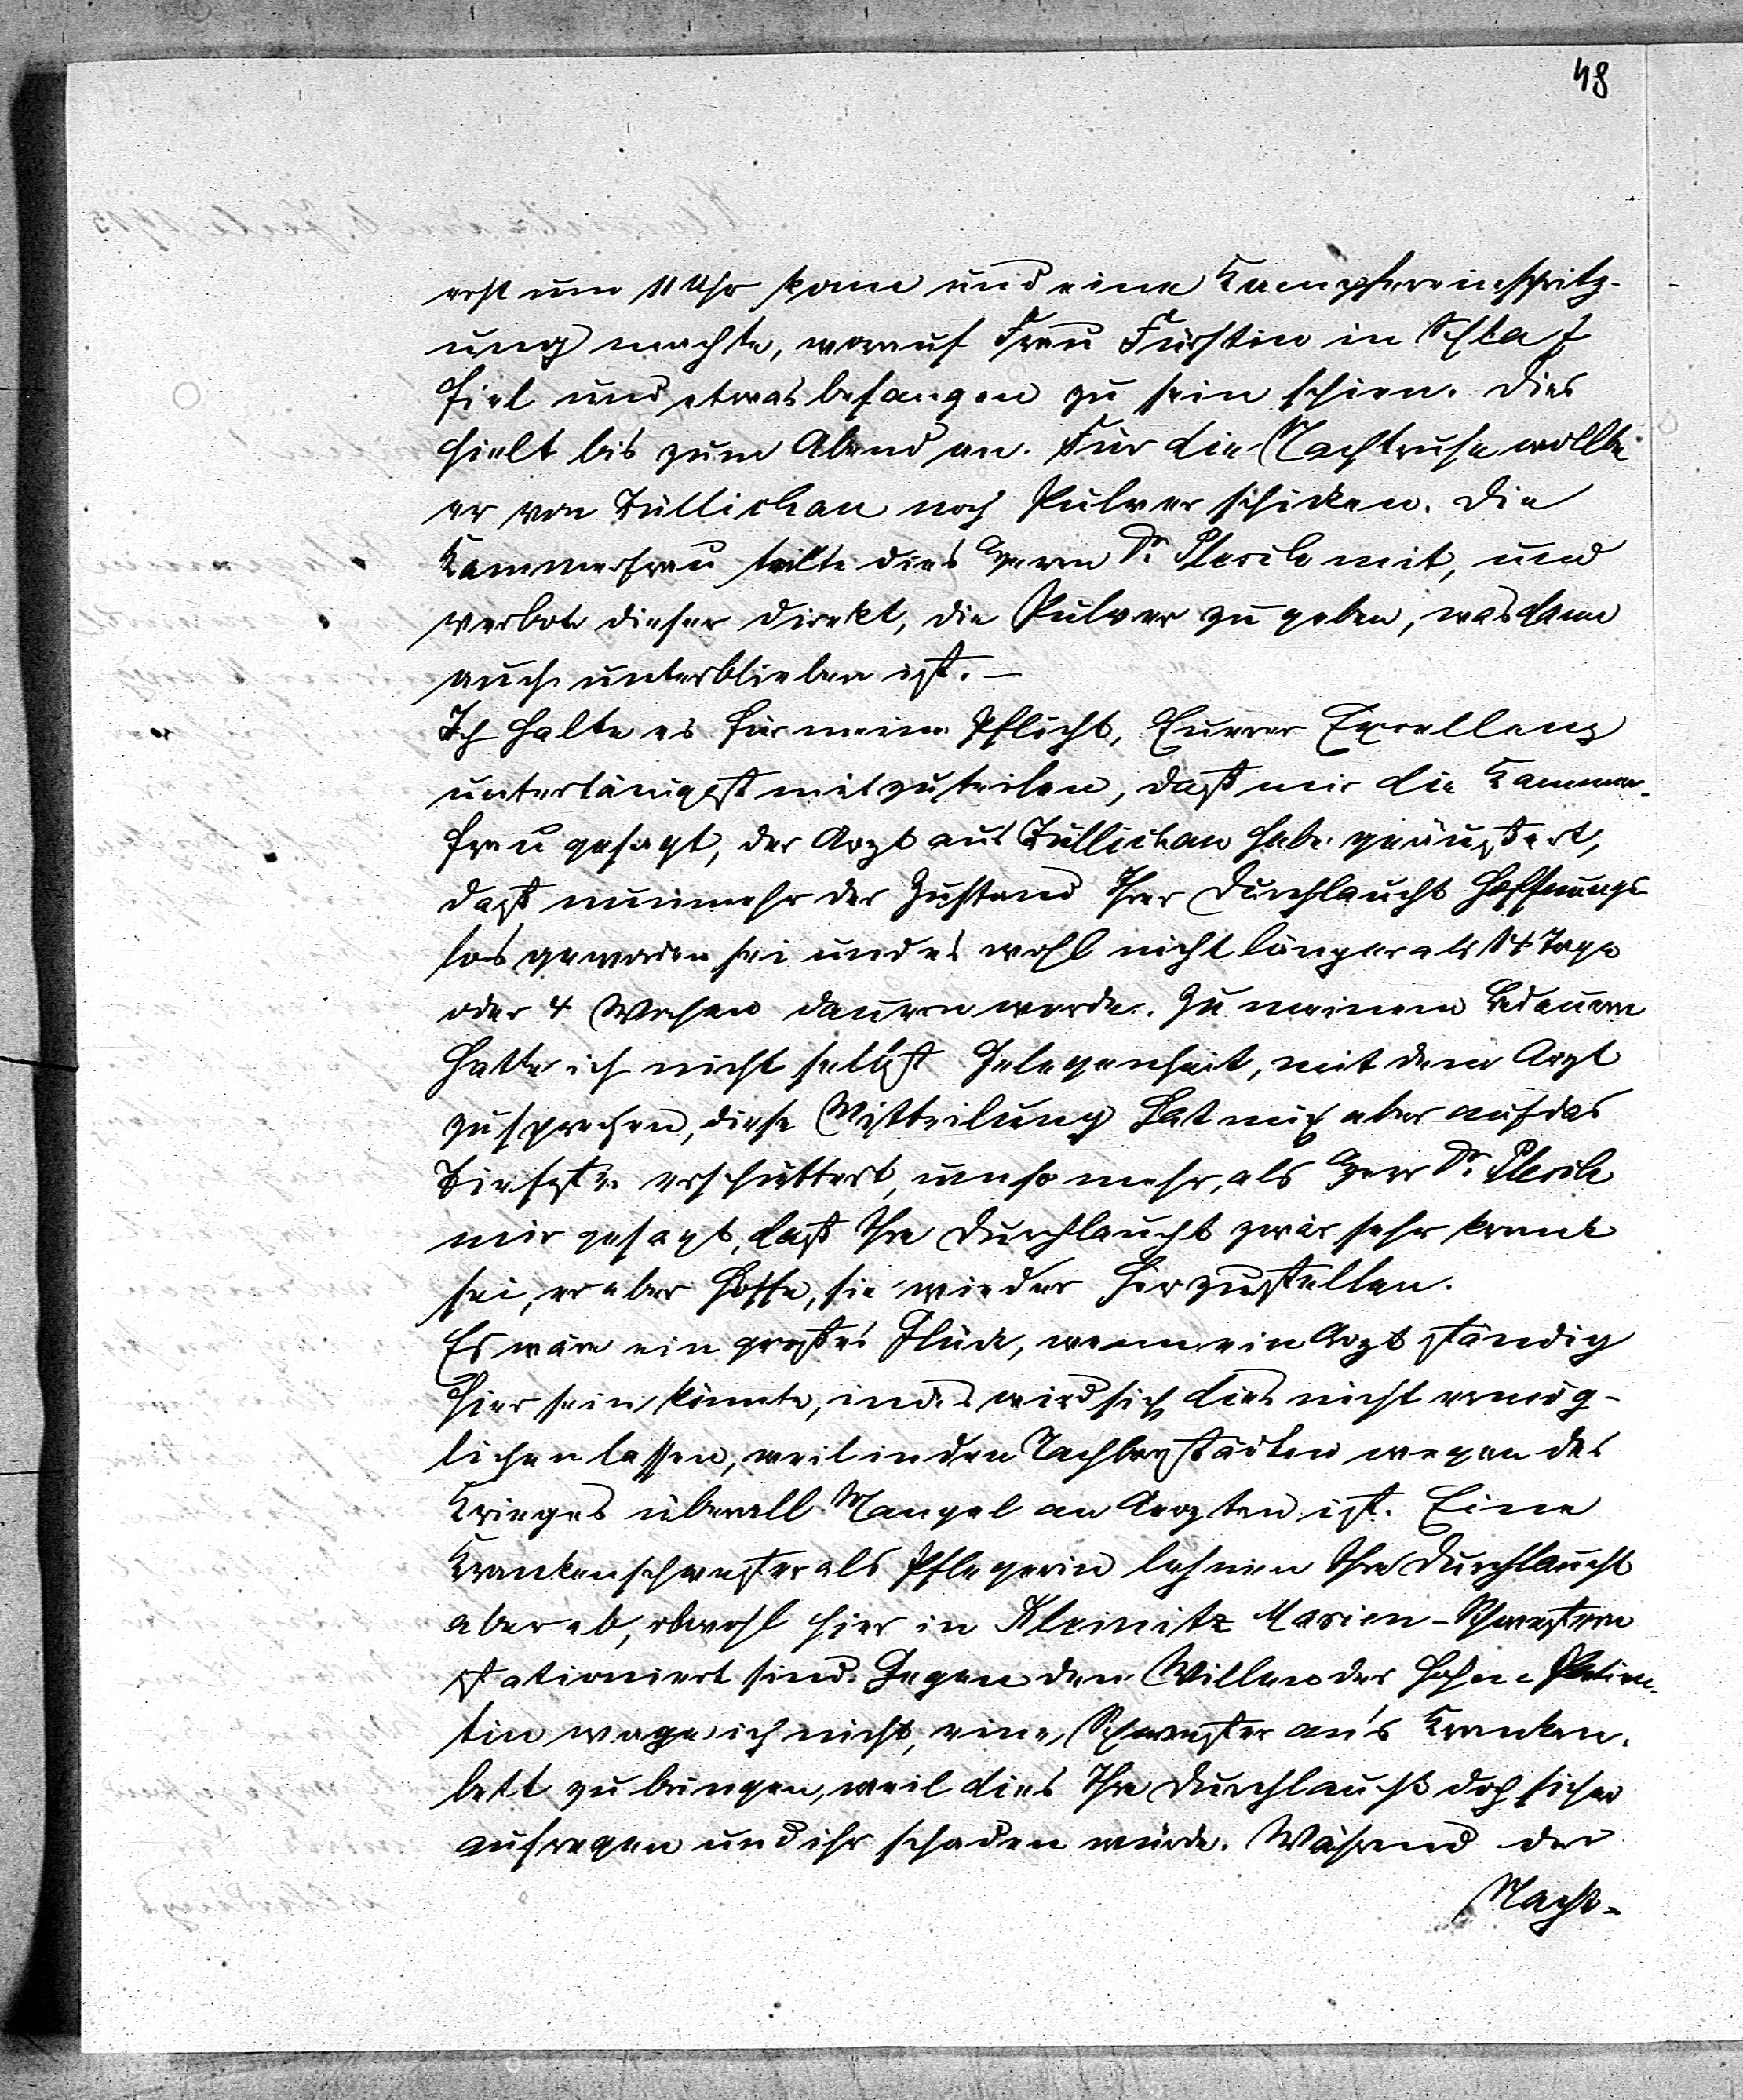 48
erst um 11 Uhr kam und eine Kampfereinspritz-
ung machte, worauf Frau Fürstin in Schlaf
fiel und etwas befangen zu sein schien. Dies
hielt bis zum Abend an. Für die Nachtruhe wollte
er von Züllichau noch Pulver schicken. Die
Kammerfrau teilte dies Herrn Dr. Plesch mit, und
verbot dieser direkt, die Pulver zu geben, was dann
auch unterblieben ist. —
Ich halte es für meine Pflicht, Eurer Excellenz
untertänigst mitzuteilen, daß mir die Kammer-
frau gesagt, der Arzt aus Züllichau habe geäußert,
daß nunmehr der Zustand Ihrer Durchlaucht hoffnungs-
los geworden sei und es wohl nicht länger als 14 Tage
oder 4 Wochen dauern werde. Zu meinem Bedauern
hatte ich nicht selbst Gelegenheit, mit dem Arzt
zu sprechen, diese Mitteilung hat mich aber auf das
Tiefste erschüttert, umso mehr, als Herr Dr. Plesch
mir gesagt, daß Ihre Durchlaucht zwar sehr krank
sei, er aber hoffe, sie wieder herzustellen.
Es wäre ein großes Glück, wenn ein Arzt ständig
hier sein könnte, indes wird sich dies nicht ermög-
lichen lassen, weil in den Nachbarstädten wegen des
Krieges überall Mangel an Aerzten ist. Eine
Krankenschwester als Pflegerin lehnen Ihre Durchlaucht
aber ab, obwohl hier in Kleinitz Marien-Schwestern
stationiert sind. Gegen den Willen der hohen Patien-
tin wage ich nicht, eine Schwester an's Kranken-
bett zu bringen, weil dies Ihre Durchlaucht doch sicher
aufregen und ihr schaden würde. Während der
Nacht-